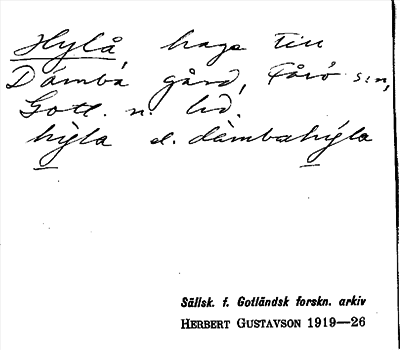 Hylå, hage till
Dämba gård, Fårö s:n,
Gotl. n. hd.
hỳla el. dàmbahýla
Sällsk. f. Gotländsk forskn. arkiv
HERBERT GUSTAVSON 1919—26